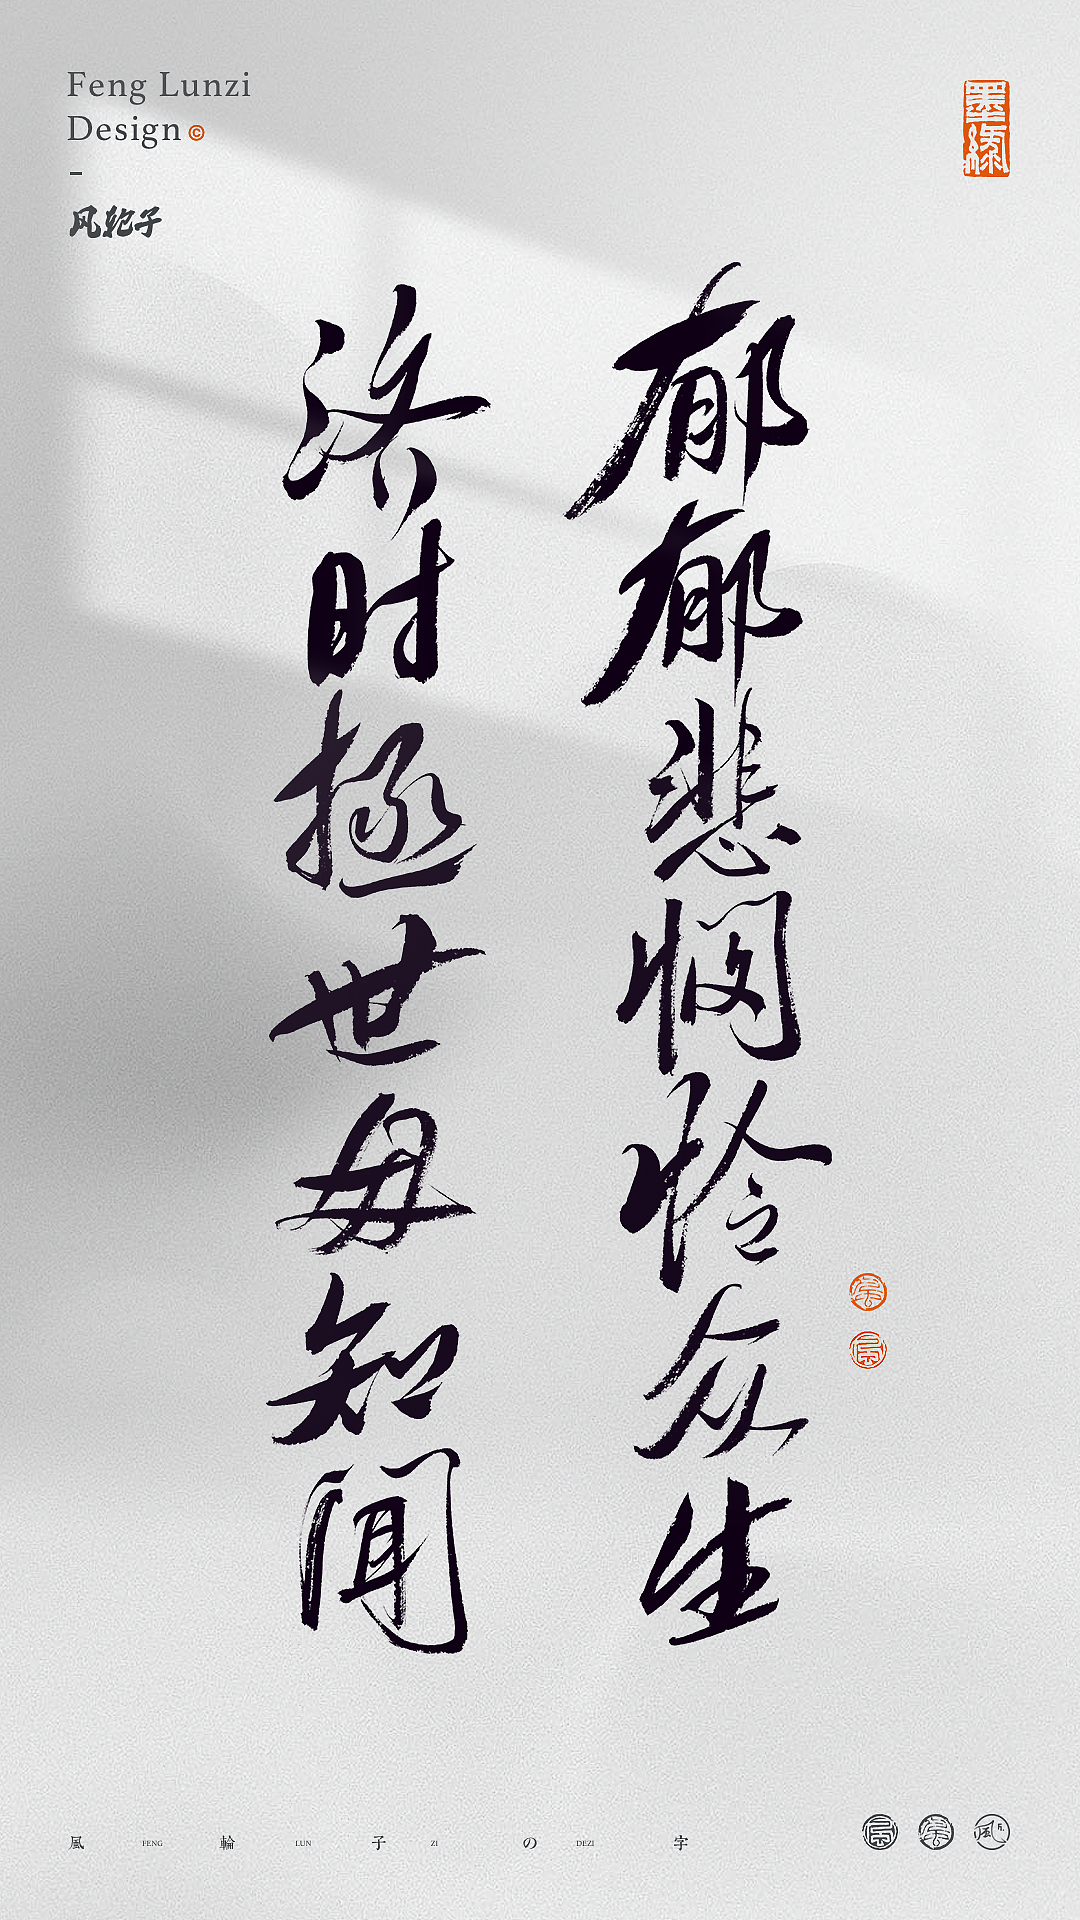 Feng Lunzi
Design©
-
风轮子
墨缘
郁郁悲悯怜众生
济时拯世毋知闻
風 FENG 輪 LUN 子 ZI の DEZI 字